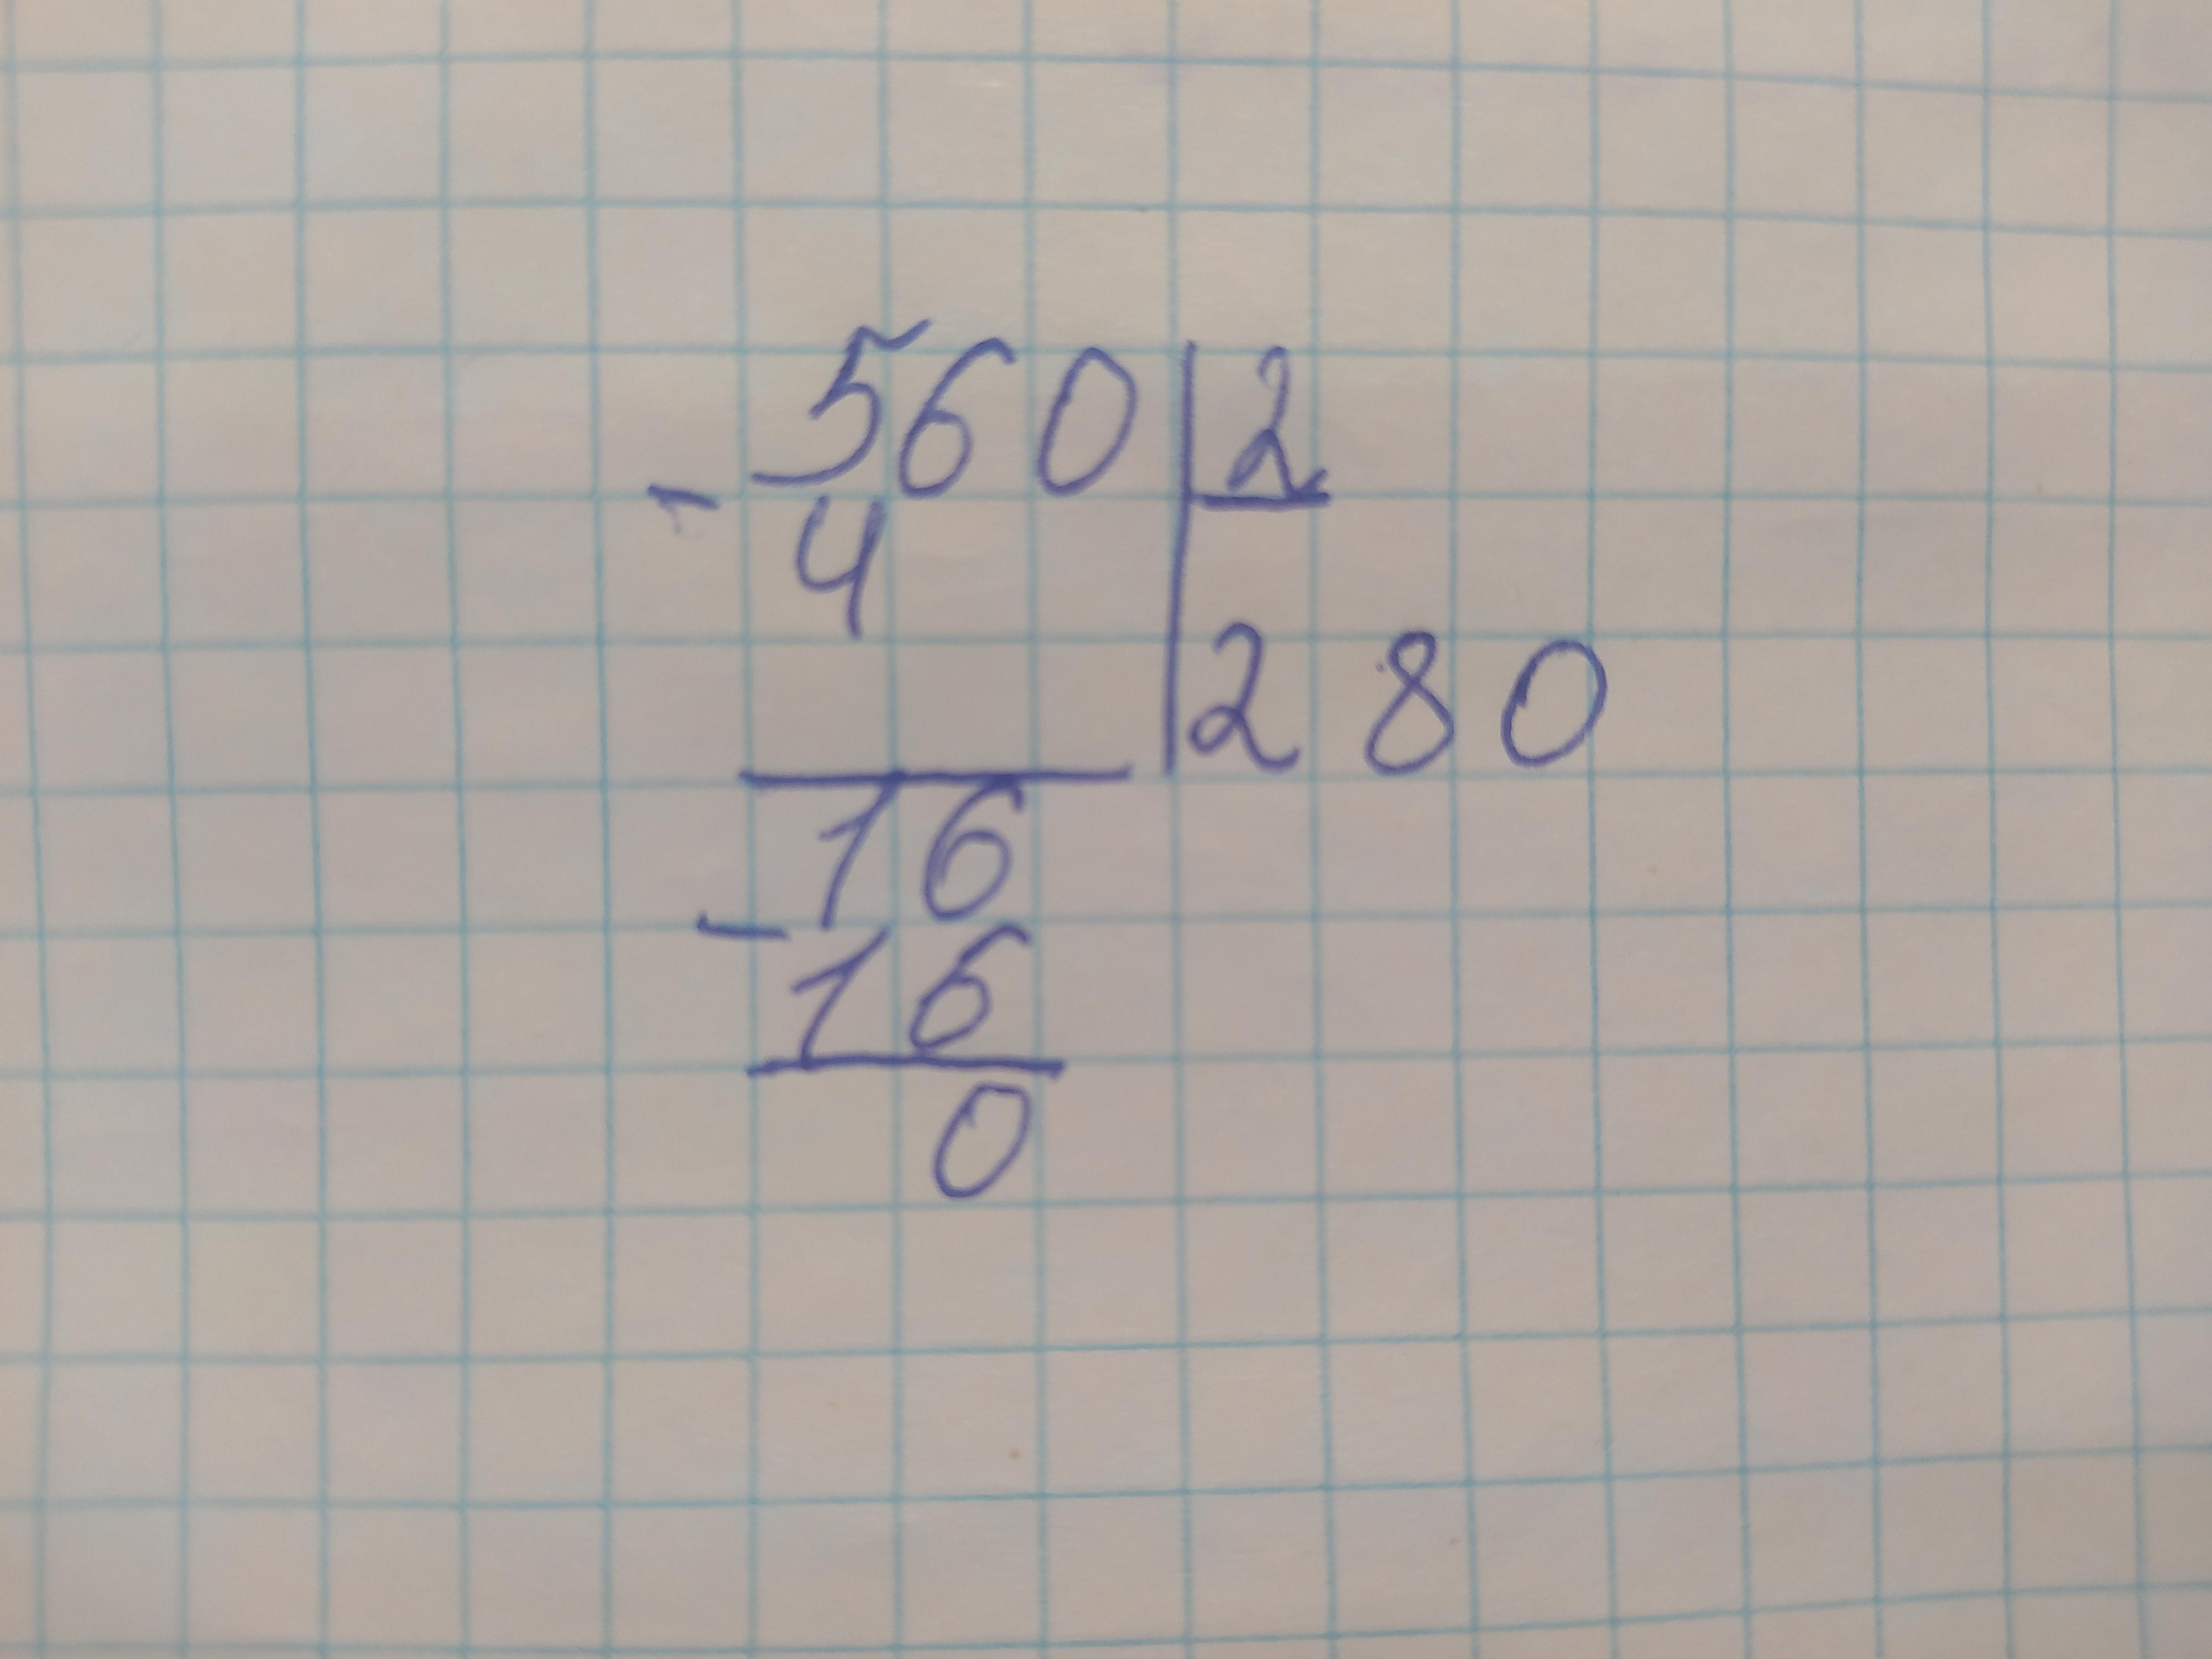 - 560 | 2
4
280
- 16
16
0